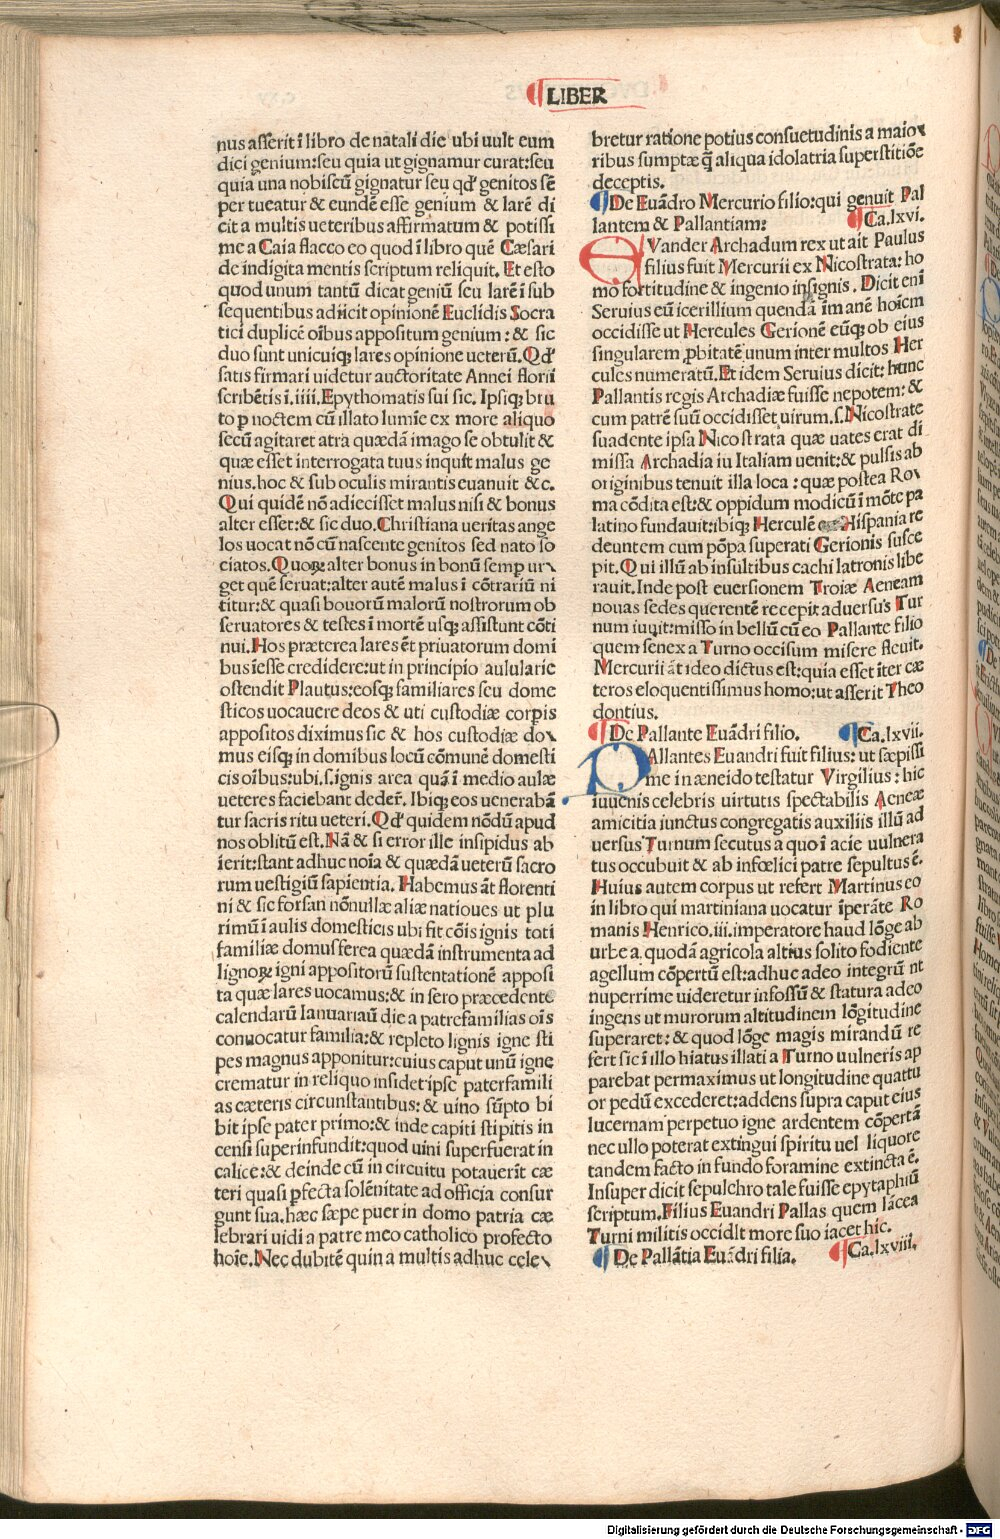 LIBER
nus asserit ĩ libro de natali die ubi uult eum
dici genium:seu quia ut gignamur curat:seu
quia una nobiscũ gignatur seu qd' genitos sẽ
per tueatur & eundẽ esse genium & larẽ di
cit a multis ueteribus affirmatum & potissi
me a Caia flacco eo quod ĩ libro quẽ Cæsari
de indigita mentis scriptum reliquit. Et esto
quod unum tantũ dicat geniũ seu larẽ ĩ sub
sequentibus adiicit opinionẽ Euclidis Socra
tici duplicẽ oĩbus appositum genium: & sic
duo sunt unicuiq; lares opinione ueterũ. Qd'
satis firmari uidetur auctoritate Annei florii
scribẽtis ĩ.iiii.Epythomatis sui sic. Ipsiq; bru
to ꝑ noctem cũ illato lumĩe ex more aliquo
secũ agitaret atra quædã imago se obtulit &
quæ esset interrogata tuus inquit malus ge
nius.hoc & sub oculis mirantis euanuit &c.
Qui quidẽ nõ adiecisset malus nisi & bonus
alter esset:& sic duo.Christiana ueritas ange
los uocat nõ cũ nascente genitos sed nato so
ciatos.Quoꝝ alter bonus in bonũ semꝑ ur
get quẽ seruat:alter autẽ malus ĩ cõtrariũ ni
titur:& quasi bouorũ malorũ nostrorum ob
seruatores & testes ĩ mortẽ usq; assistunt cõti
nui.Hos præterea lares ẽt priuatorum domi
bus ĩesse credidere:ut in principio aululariæ
ostendit Plautus:eosq; familiares seu dome
sticos uocauere deos & uti custodiæ corꝑis
appositos diximus sic & hos custodiæ do
mus eisq; in domibus locũ cõmunẽ domesti
cis oĩbus:ubi.s.ignis area quã ĩ medio aulæ
ueteres faciebant dederr̃. Ibiq; eos uenerabã
tur sacris ritu ueteri.Qd' quidem nõdũ apud
nos oblitũ est.Nã & si error ille insipidus ab
ierit:stant adhuc noĩa & quædã ueterũ sacro
rum uestigiũ sapientia. Habemus ãt florenti
ni & sic forsan nõnullæ aliæ natioues ut plu
rimũ ĩ aulis domesticis ubi fit cõis ignis toti
familiæ domus ferea quædã instrumenta ad
lignoꝝ igni appositorũ sustentationẽ apposi
ta quæ lares uocamus:& in sero præcedente
calendarũ Ianuariaũ die a patrefamilias oĩs
conuocatur familia:& repleto lignis igne sti
pes magnus apponitur:cuius caput unũ igne
crematur in reliquo insidet ipse paterfamili
as cæteris circunstantibus:& uino sũpto bi
bit ipse pater primo:& inde capiti stipitis in
censi superinfundit:quod uini superfuerat in
calice:& deinde cũ in circuitu potauerĩt cæ
teri quasi ꝑfecta solẽnitate ad officia consur
gunt sua.hæc sæpe puer in domo patria cæ
lebrari uidi a patre meo catholico profecto
hoĩe.Nec dubitẽ quin a multis adhuc cele
bretur ratione potius consuetudinis a maio
ribus sumptæ q̃ aliqua idolatria superstitiõe
deceptis.
De Euãdro Mercurio filio:qui genuit Pal
lantem & Pallantiam: Ca.lxvi.
EVander Archadum rex ut ait Paulus
filius fuit Mercurii ex Nicostrata: ho
mo fortitudine & ingenio insignis. Dicit eni
Seruius eũ icerillium quendã ĩmanẽ hoĩem
occidisse ut Hercules Gerionẽ eũq; ob eius
singularem ꝓbitatẽ unum inter multos Her
cules numeratũ.Et idem Seruius dicit: hunc
Pallantis regis Archadiæ fuisse nepotem: &
cum patrẽ suũ occidisset uirum.s.Nicostrate
suadente ipsa Nicostrata quæ uates erat di
missa Archadia iu Italiam uenit:& pulsis ab
originibus tenuit illa loca: quæ postea Ro
ma cõdita est:& oppidum modicũ ĩ mõte pa
latino fundauit:ibiq; Herculẽ Hispania re
deuntem cum põpa superati Gerionis susce
pit.Qui illũ ab insultibus cachi latronis libe
rauit.Inde post euersionem Troiæ Aeneam
nouas sedes querentẽ recepit aduersus Tur
num iuuit:misso in bellũ cũ eo Pallante filio
quem senex a Turno occisum misere fleuit.
Mercurii ãt ideo dictus est:quia esset ĩter cæ
teros eloquentissimus homo:ut asserit Theo
dontius.
De Pallante Euãdri filio. Ca.lxvii.
PAllantes Euandri fuit filius: ut sæpissi
me in æneido testatur Virgilius: hic
iuuenis celebris uirtutis spectabilis Aeneæ
amicitia iunctus congregatis auxiliis illũ ad
uersus Turnum secutus a quo ĩ acie uulnera
tus occubuit & ab infœlici patre sepultus ẽ.
Huius autem corpus ut refert Martinus eo
in libro qui martiniana uocatur ĩperãte Ro
manis Henrico.iii.imperatore haud lõge ab
urbe a quodã agricola altius solito fodiente
agellum cõpertũ est:adhuc adeo integrũ nt
nuperrime uideretur infossũ & statura adeo
ingens ut murorum altitudinem lõgitudine
superaret: & quod lõge magis mirandũ re
fert sic ĩ illo hiatus illati a Turno uulneris ap
parebat permaximus ut longitudine quattu
or pedũ excederet:addens supra caput eius
lucernam perpetuo igne ardentem cõpertã
nec ullo poterat extingui spiritu uel liquore
tandem facto in fundo foramine extincta ẽ.
Insuper dicit sepulchro tale fuisse epytaphiũ
scriptum.Filius Euandri Pallas quem lãcea
Turni militis occidit more suo iacet hic.
De Pallãtia Euãdri filia. Ca.lxviii.
Digitalisierung gefördert durch die Deutsche Forschungsgemeinschaft - DFG